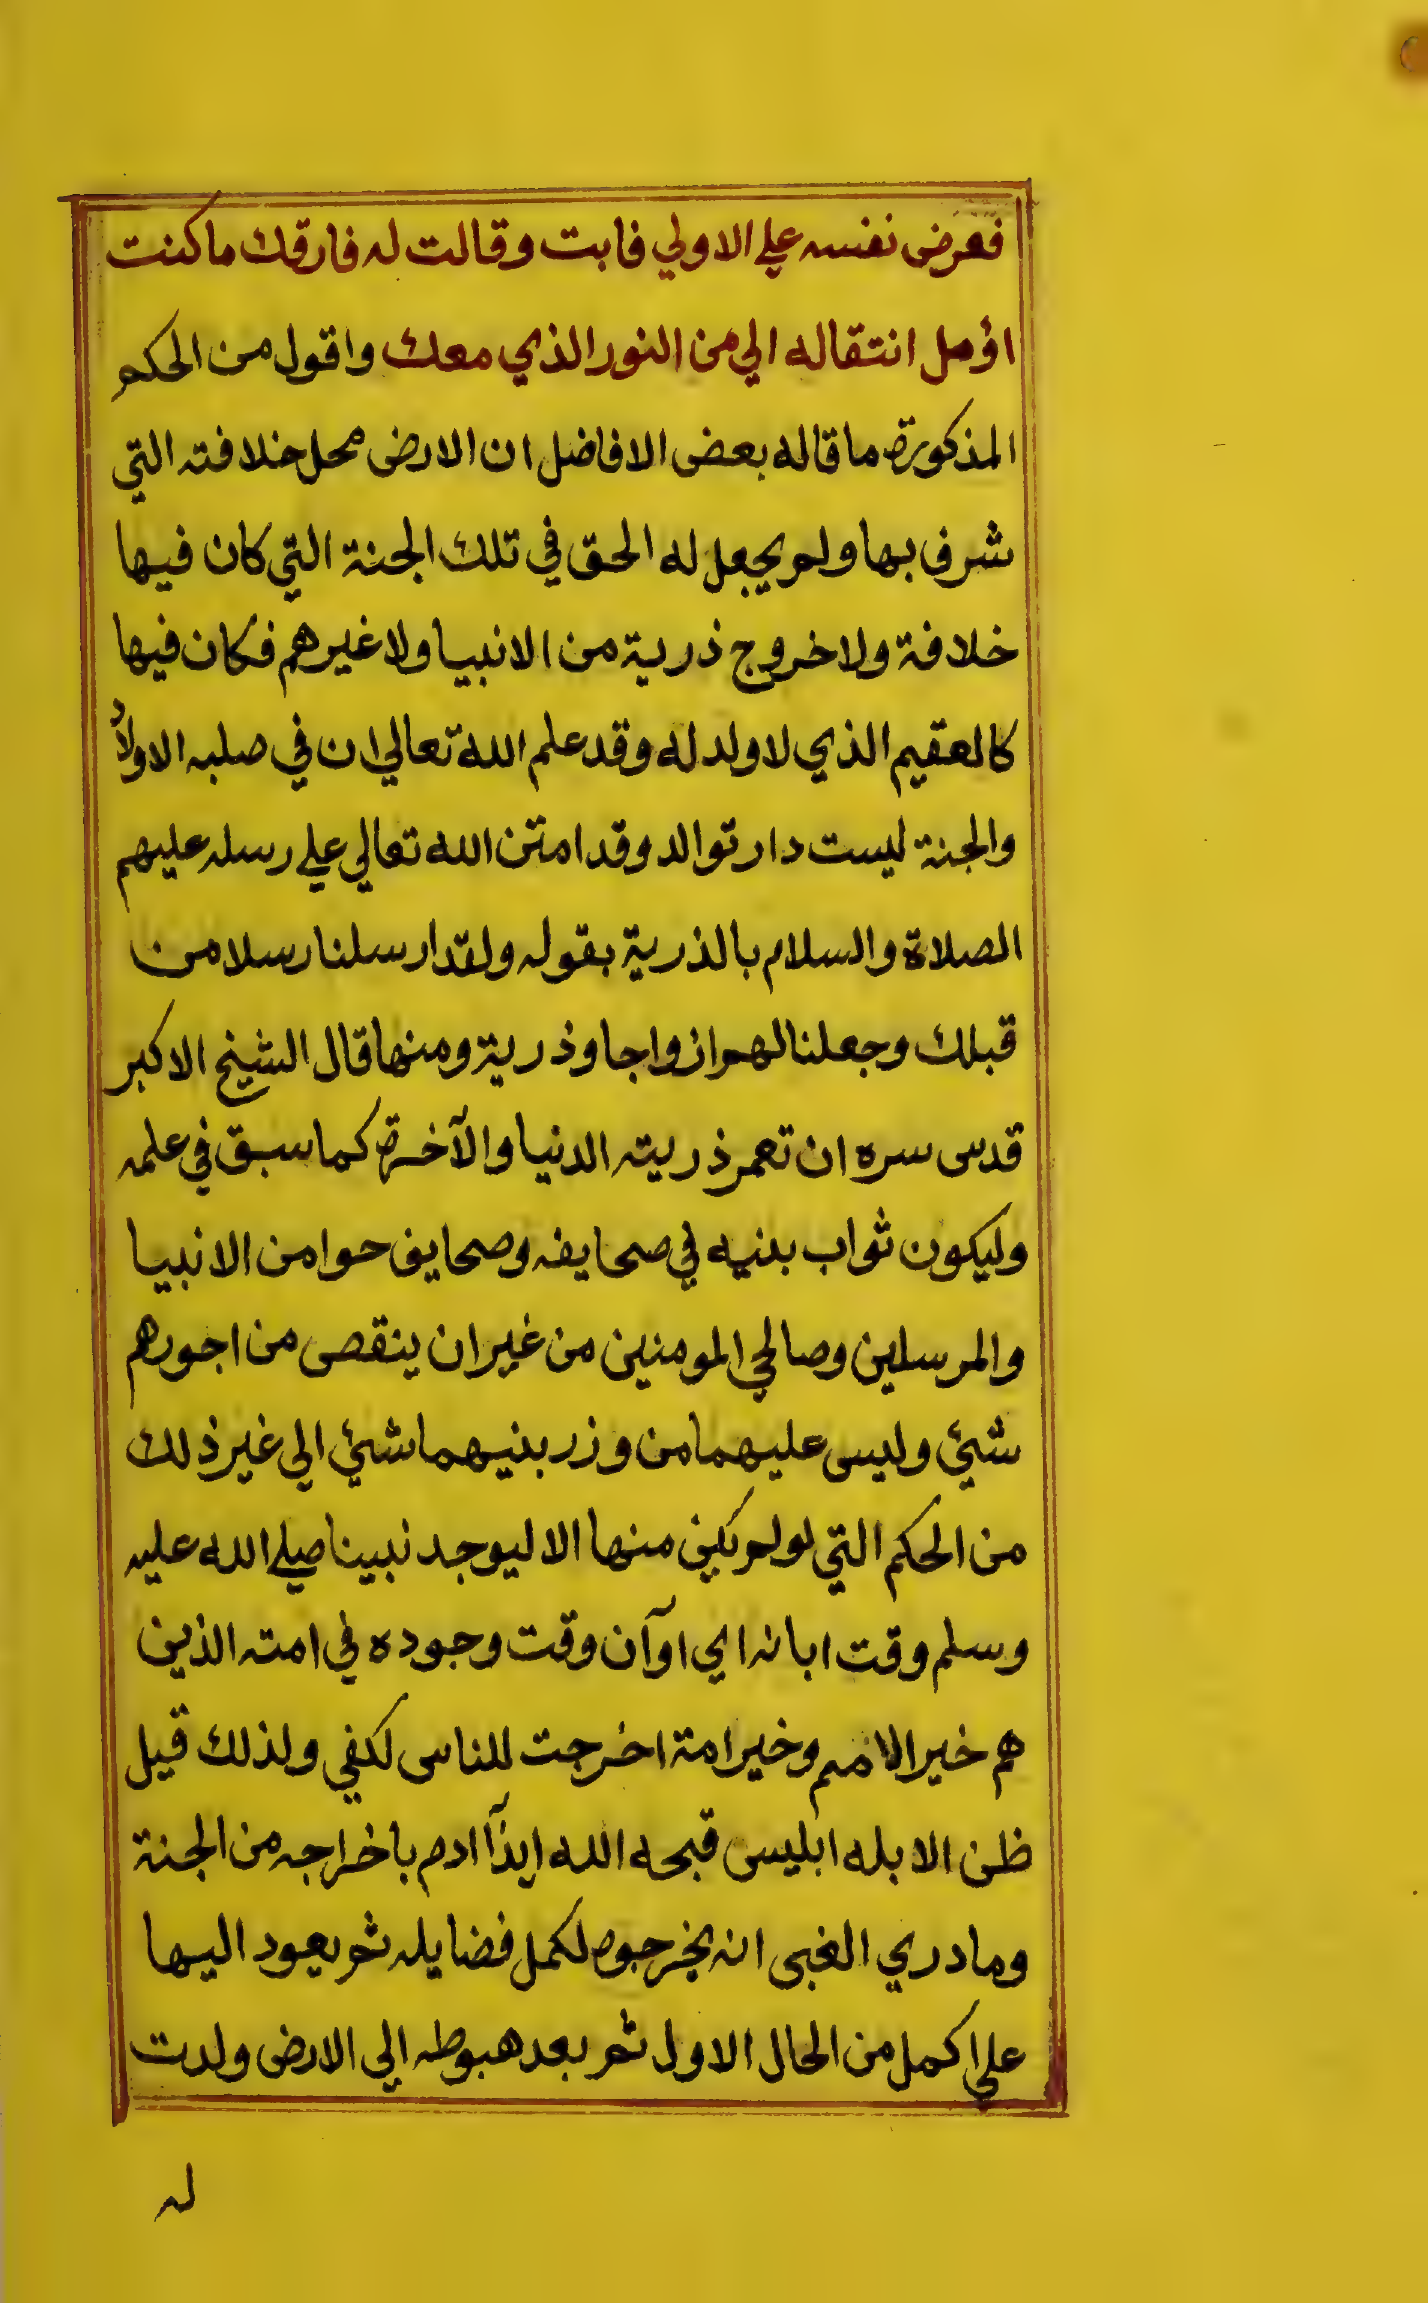 فعرض نفسه علي الاولي فابت وقالت له فارقك ماكنت
اؤمل انتقاله الي من النور الذي معك واقول من الحكم
المذكورة ما قاله بعض الافاضل ان الارض محل خلافته التي
شرف بها ولم يجعل له الحق في تلك الجنة التي كان فيها
خلافة ولا خروج ذرية من الانبيا ولا غيرهم فكان فيها
كالعقيم الذي لا ولد له وقد علم الله تعالي ان في صلبه الاولاد
والجنة ليست دار توالد وقد امتن الله تعالي علي رسله عليهم
الصلاة والسلام بالذرية بقوله ولقد ارسلنا رسلا من
قبلك وجعلنا لهم ازواجا وذرية ومنها قال الشيخ الاكبر
قدس سره ان تعمر ذريته الدنيا والآخرة كما سبق في علمه
وليكون ثواب بنيه في صحايفه وصحايف حوا من الانبيا
والمرسلين وصالحي المومنين من غير ان ينقص من اجورهم
شيئ وليس عليهما من وزر بنيهما شيئ الي غير ذلك
من الحكم التي لو لم يكن منها الا ليوجد نبينا صلي الله عليه
وسلم وقت ابانه اي اوآن وقت وجوده في امته الذين
هم خير الامم وخير امة اخرجت للناس لكفي ولذلك قيل
ظن الابله ابليس قبحه الله ايذآ ادم باخراجه من الجنة
وما دري الغبي انه يخرجه لكمل فضايله ثم يعود اليها
علي اكمل من الحال الاول ثم بعد هبوطه الي الارض ولدت
له